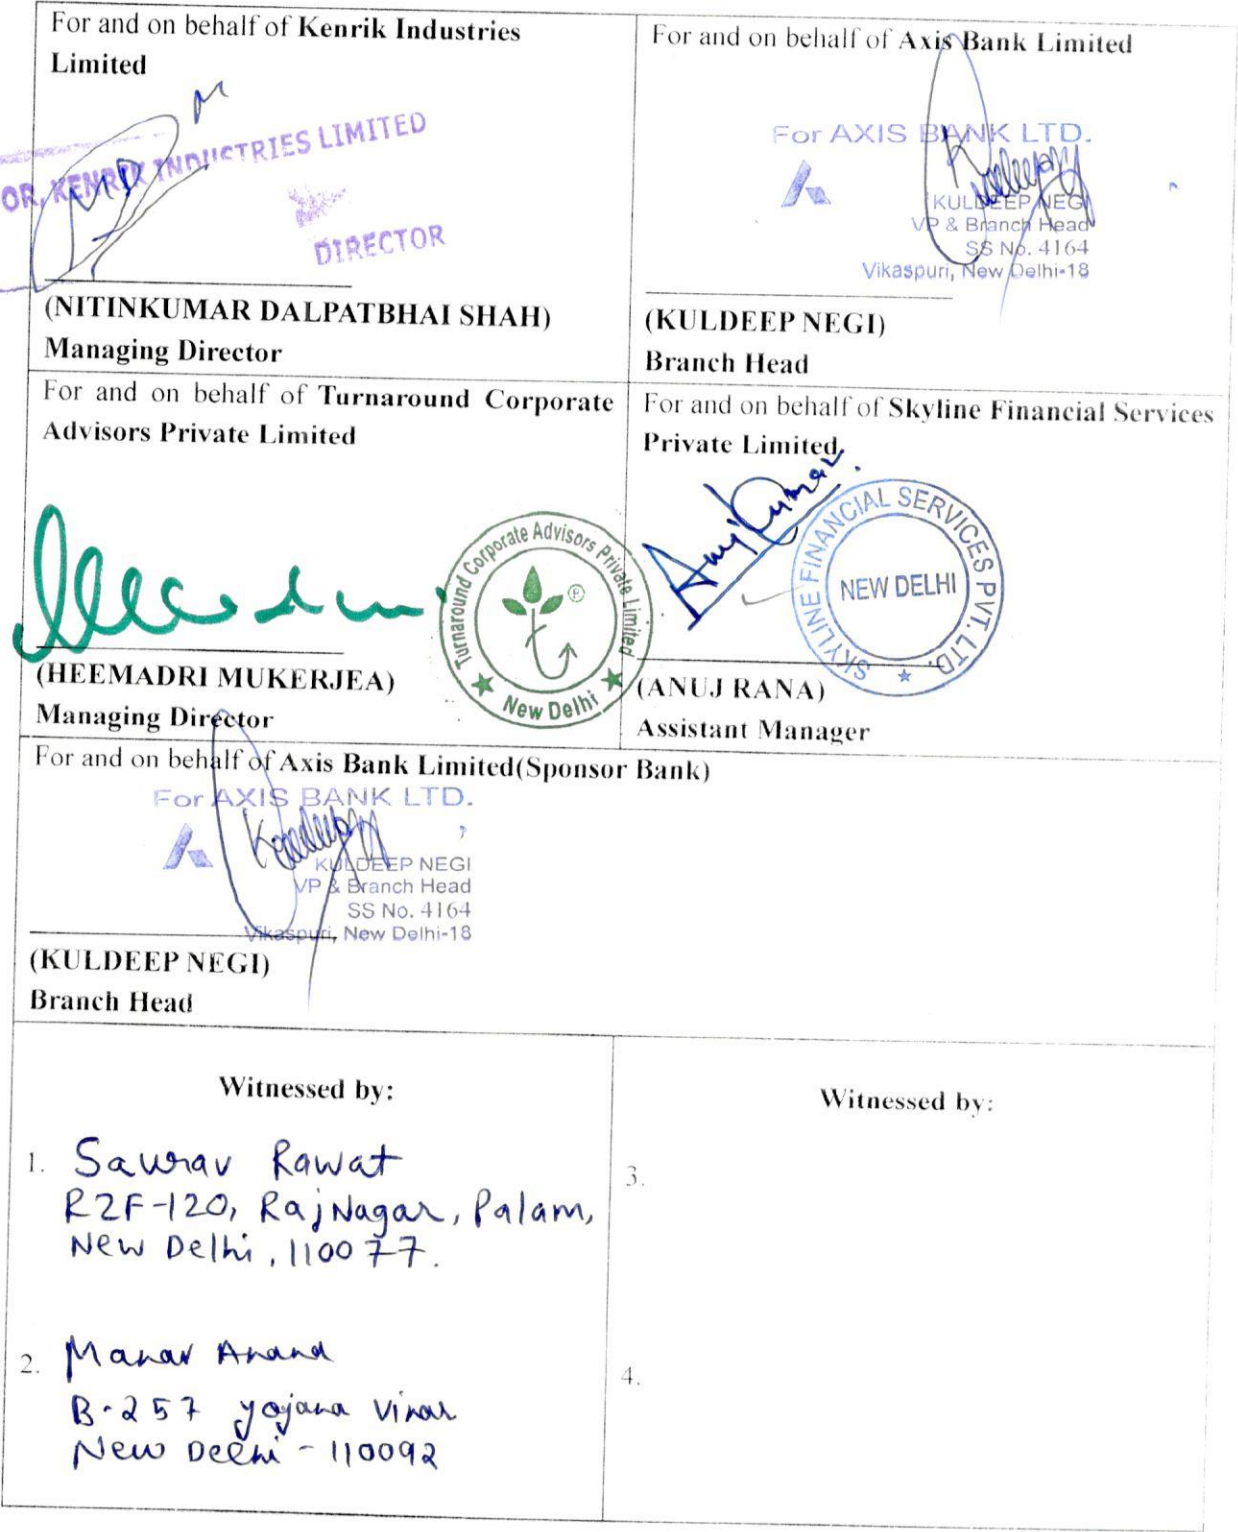 For and on behalf of Kenrik Industries
Limited
OR, KENRIK INDUSTRIES LIMITED
DIRECTOR
(NITINKUMAR DALPATBHAI SHAH)
Managing Director
For and on behalf of Axis Bank Limited
For AXIS BANK LTD.
KULDEEP NEGI
VP & Branch Head
SS No. 4164
Vikaspuri, New Delhi-18
(KULDEEP NEGI)
Branch Head
For and on behalf of Turnaround Corporate
Advisors Private Limited
Turnaround Corporate Advisors Private Limited
New Delhi
(HEEMADRI MUKERJEA)
Managing Director
For and on behalf of Skyline Financial Services
Private Limited
SKYLINE FINANCIAL SERVICES PVT. LTD.
NEW DELHI
(ANUJ RANA)
Assistant Manager
For and on behalf of Axis Bank Limited(Sponsor Bank)
For AXIS BANK LTD.
KULDEEP NEGI
VP & Branch Head
SS No. 4164
Vikaspuri, New Delhi-18
(KULDEEP NEGI)
Branch Head
Witnessed by:
1. Saurav Rawat
RZF-120, Raj Nagar, Palam,
New Delhi, 110077.
2. Manav Anand
B-257 yojana Vihar
New Delhi - 110092
Witnessed by:
3.
4.